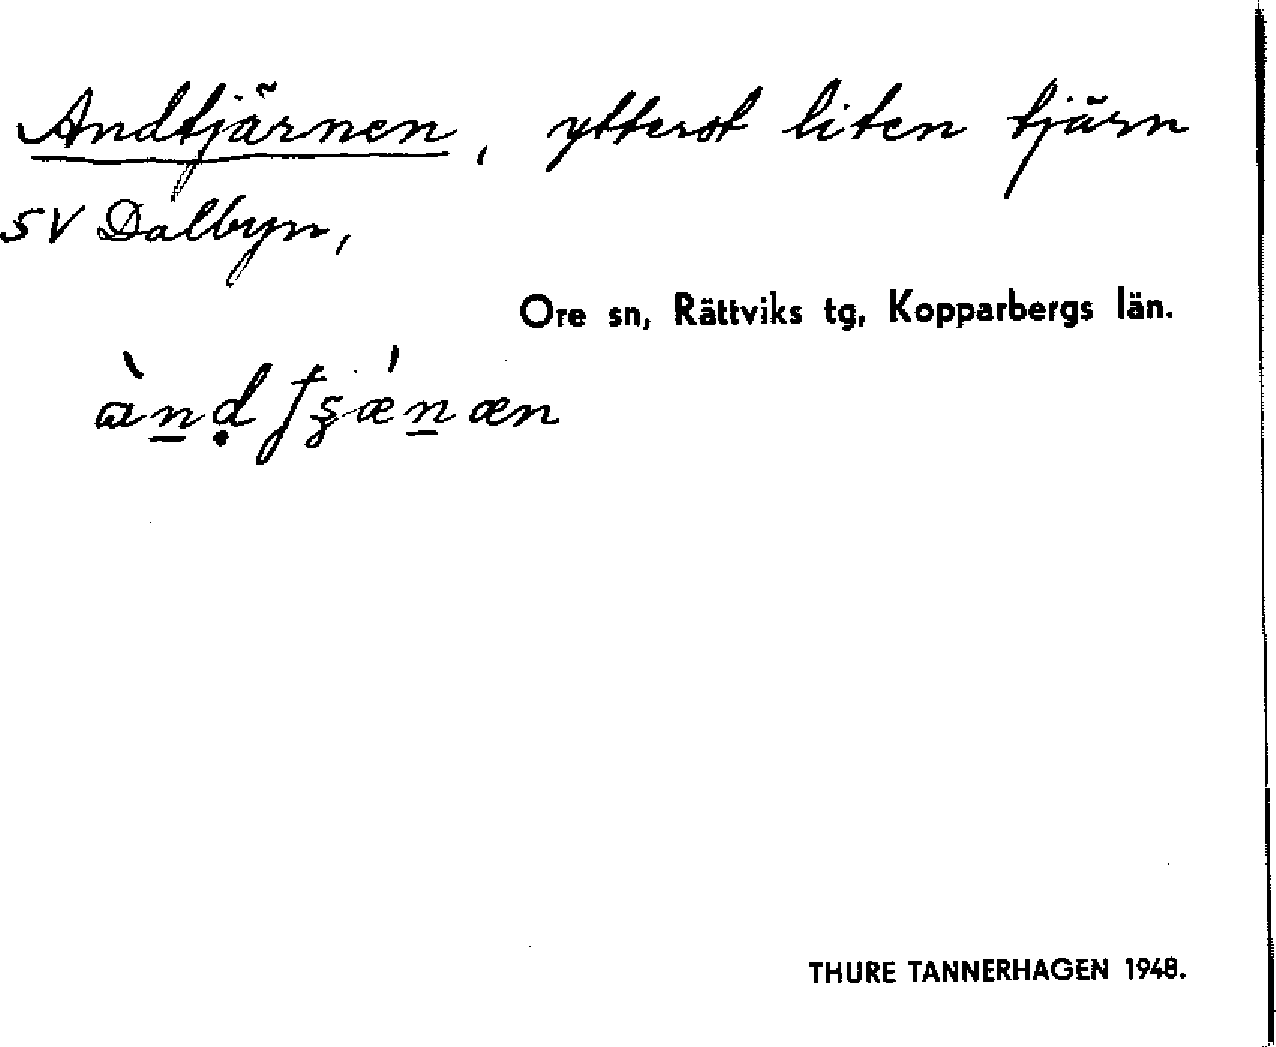 Andtjärnen, ytterst liten tjärn
SV Dalbyn,
Ore sn, Rättviks tg, Kopparbergs län.
THURE TANNERHAGEN 1948.